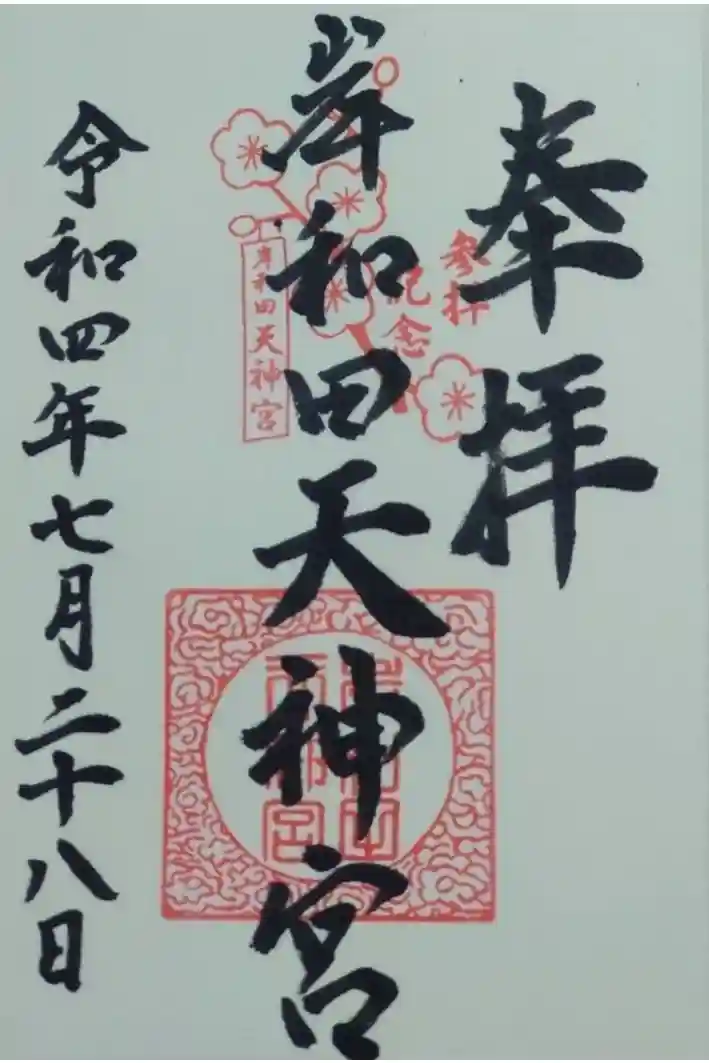 奉拝
参拝
記念
岸和田天神宮
岸和田天神宮
令和四年七月二十八日